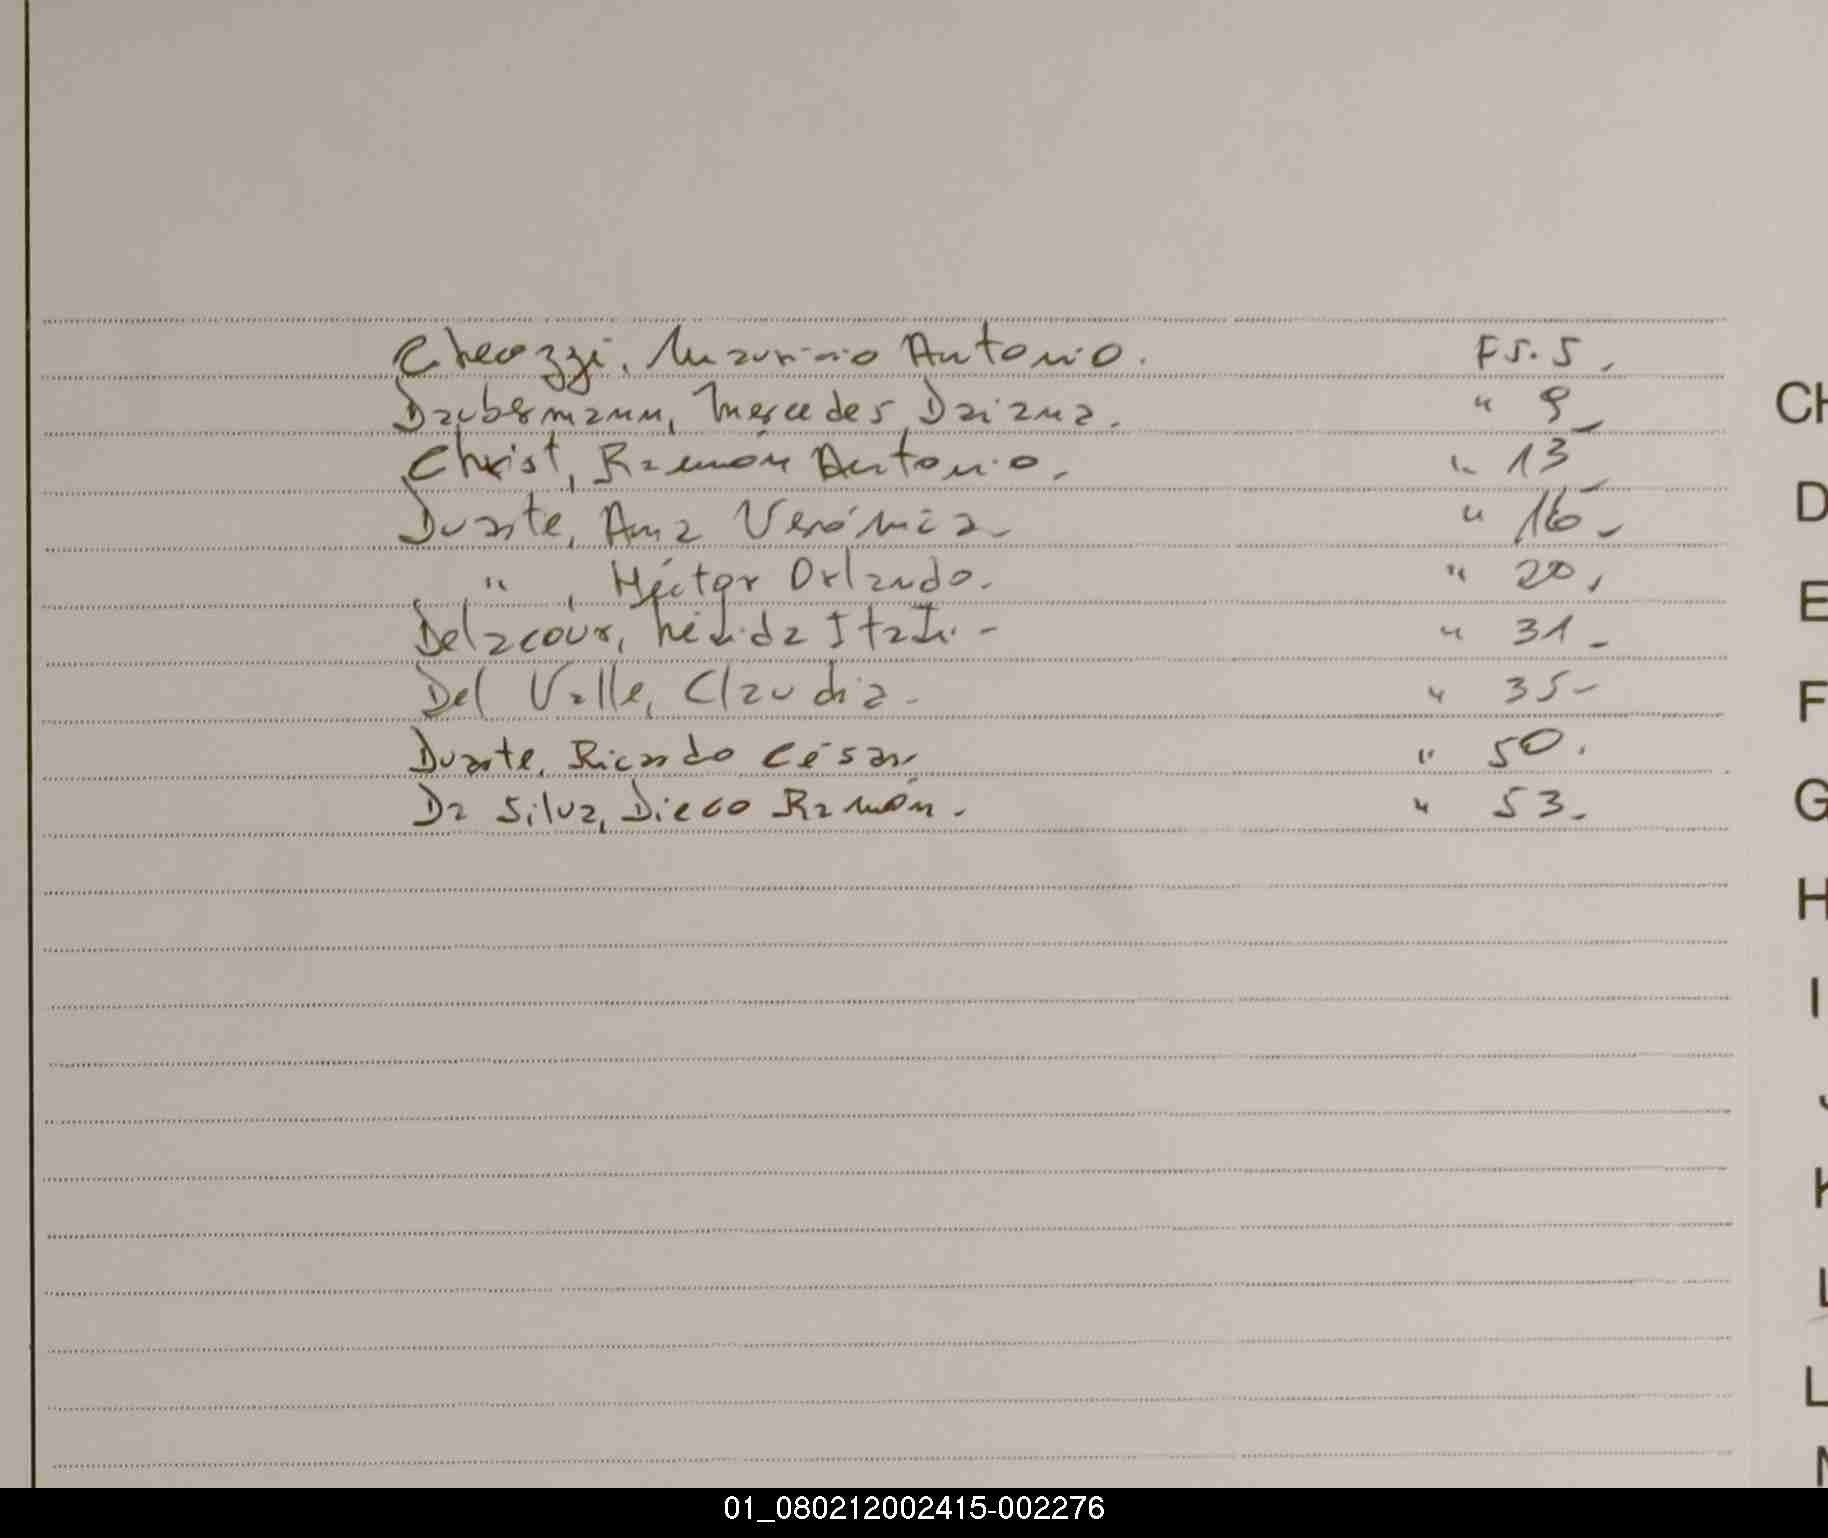 Cheozzi, Mauricio Antonio. Fs. 5.
Daubermann, Mercedes Daiana. " 9_
Christ, Ramón Antonio. " 13_
Duarte, Ana Verónica_ " 16_
" , Héctor Orlando. " 20.
Delacour, Nélida Itatí. - " 31_
Del Valle, Claudia - " 35-
Duarte, Ricardo César. " 50.
Da Silva, Diego Ramón. " 53.
CH
D
E
F
G
H
I
J
K
L
L
01_080212002415-002276